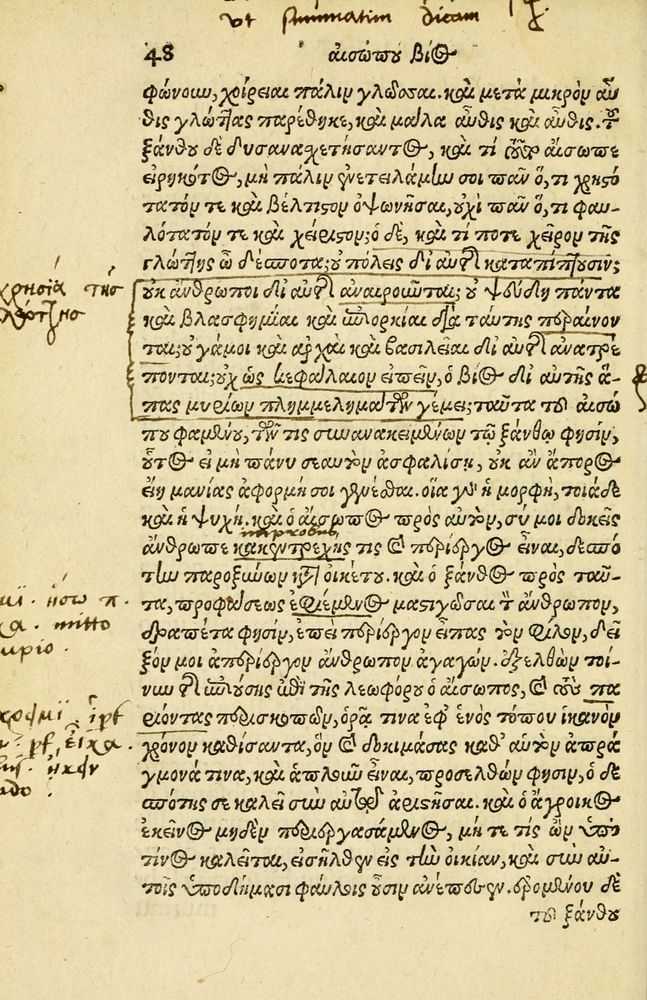 ut summatim dicam
48 αἰσώπου βίος
φώνουν, χοίρειαι πάλιν γλῶσσαι. καὶ μετὰ μικρὸν αὖ-
θις γλώττας παρέθηκε, καὶ μάλα αὖθις καὶ αὖθις. τοῦ
ξάνθου δὲ δυσανασχετήσαντος, καὶ τί τοῦτο αἴσωπε
εἰρηκότος, μὴ πάλιν ἐνετειλάμην σοι πᾶν ὅ,τι χρησό
τατόν τε καὶ βέλτιστον ὀψωνῆσαι, οὐχὶ πᾶν ὅ,τι φαυ-
λότατόν τε καὶ χείριστον; ὁ δὲ, καὶ τί ποτε χεῖρον τῆς
γλώττης ὦ δέσποτα; οὐ πόλεις δι' αὐτῆς καταπίπτουσιν;
χρησιά τῆς
οὐκ ἄνθρωποι δι' αὐτῆς ἀναιροῦνται; οὐ ψεύδη πάντα
γλώττης
καὶ βλασφημίαι καὶ ἐπιορκίαι διὰ ταύτης περαίνον
ται; οὐ γάμοι καὶ ἀρχαὶ καὶ βασιλεῖαι δι' αὐτῆς ἀνατρέ
πονται; οὐχ ὡς κεφάλαιον εἰπεῖν, ὁ βίος δι' αὐτῆς ἅ-
πας μυρίων πλημμελημάτων γέμει; ταῦτα τοῦ αἰσώ
που φαμένου, τῶν τις συνανακειμένων τῷ ξάνθῳ φησίν,
οὗτος εἰ μὴ πάνυ σεαυτὸν ἀσφαλίσῃ, οὐκ ἂν ἄπορος
εἴη μανίας ἀφορμή σοι γενέσθαι. οἵα γὰρ ἡ μορφὴ, τοιάδε
καὶ ἡ ψυχή. καὶ ὁ αἴσωπος πρὸς αὐτὸν, σύ μοι δοκεῖς
ἄνθρωπε κακεντρεχής τις καὶ περίεργος εἶναι, δεσπό
την παροξύνων κατ' οἰκέτου. καὶ ὁ ξάνθος πρὸς ταῦ-
τα, προφάσεως ἐφιέμενος μαστιγῶσαι τὸν ἄνθρωπον,
mitto
δραπέτα φησίν, ἐπεὶ περίεργον εἶπας τὸν φίλον, δεῖ
ξόν μοι ἀπερίεργον ἄνθρωπον ἀγαγών. ἐξελθὼν τοί-
νυν τῆς ἐπιούσης ἐπὶ τῆς λεωφόρου ὁ αἴσωπος, καὶ τοὺς πα
ριόντας περισκοπῶν, ὁρᾷ τινα ἐφ' ἑνὸς τόπου ἱκανὸν
χρόνον καθίσαντα, ὃν καὶ δοκιμάσας καθ' αὑτὸν ἀπρά
γμονά τινα, καὶ ἁπλοῦν εἶναι, προσελθών φησιν, ὁ δε
σπότης σε καλεῖ σὺν αὐτῷ ἀριστῆσαι. καὶ ὁ ἄγροικος
ἐκεῖνος μηδὲν περιεργασάμενος, μήτε τίς ὢν ὑπὸ
τίνος καλεῖται, εἰσῆλθεν εἰς τὴν οἰκίαν, καὶ σὺν αὐ-
τοῖς ὑποδήμασι φαύλοις οὖσιν ἀνέπεσεν. ἐρομένου δὲ
τοῦ ξάνθου